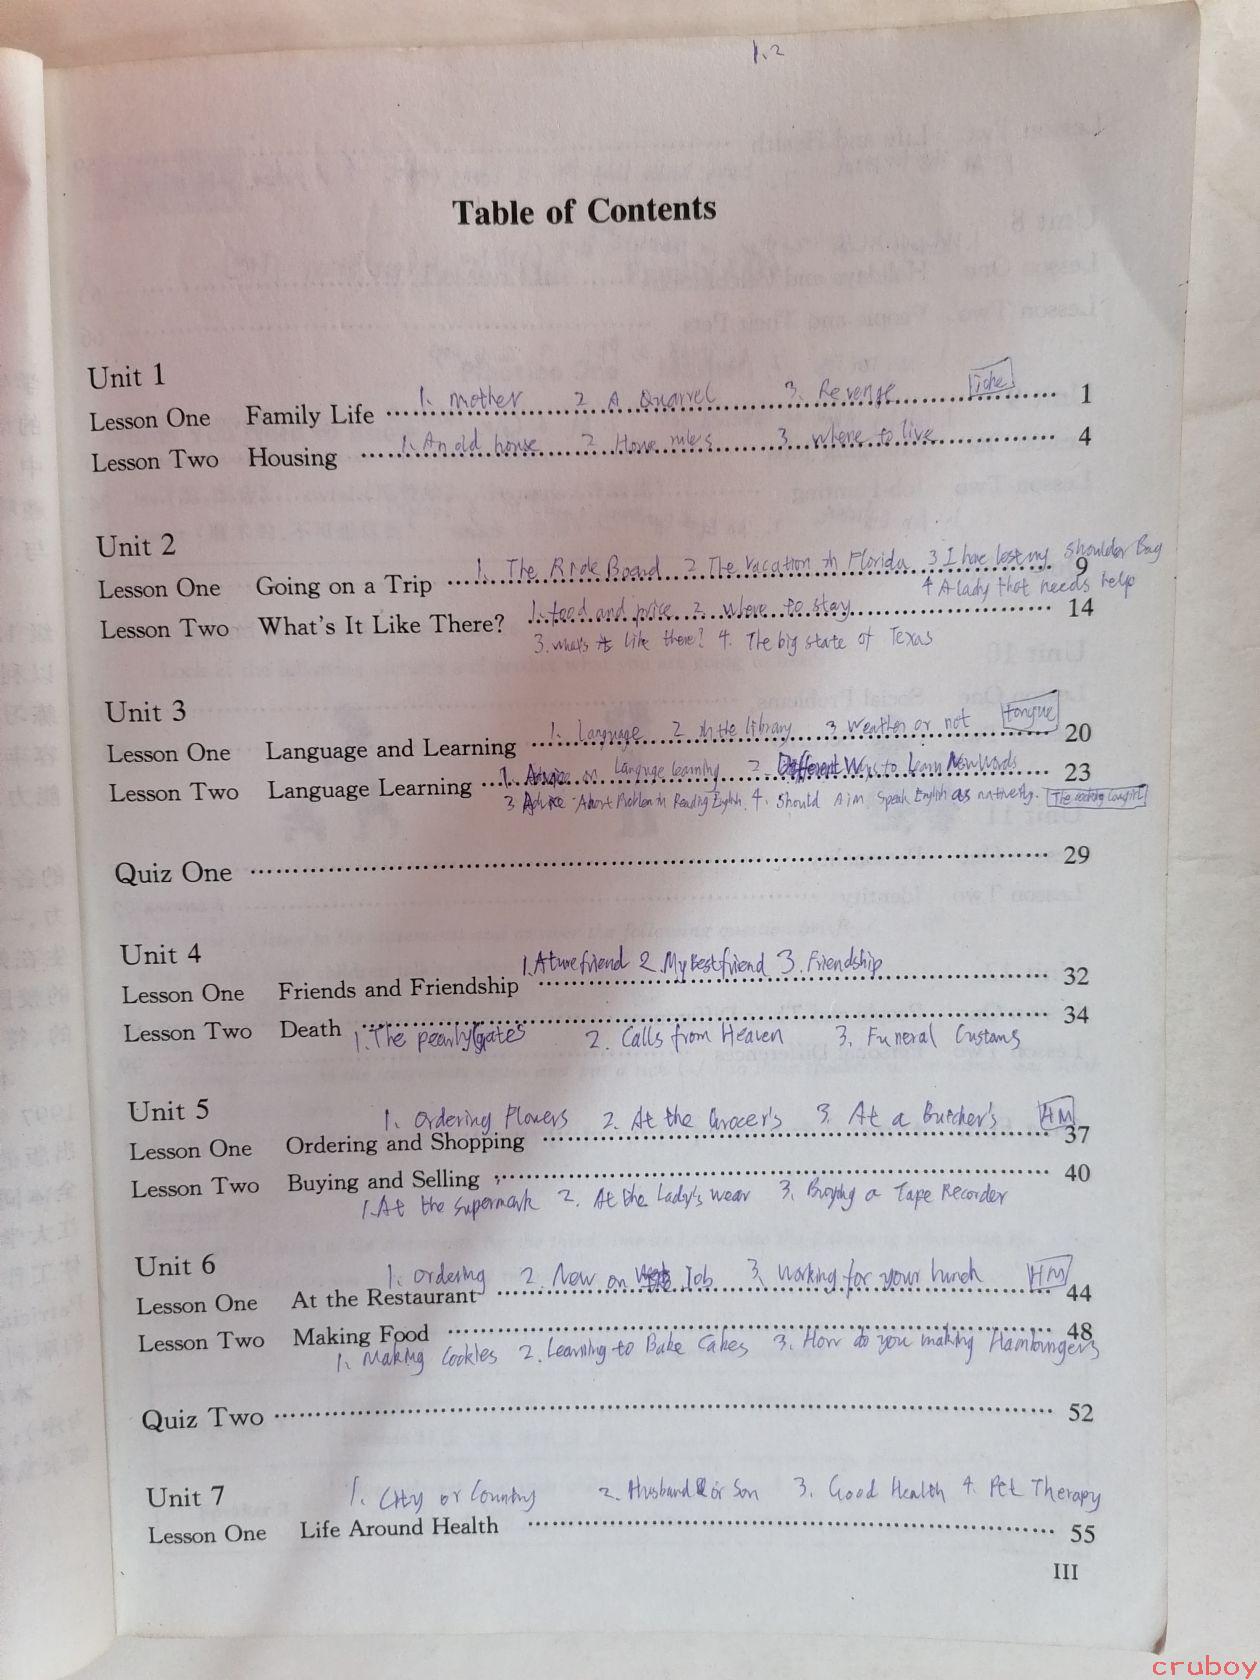 1.2
Table of Contents
Unit 1
1. Mother 2 A Quarrel 3. Revenge
Lesson One Family Life 1
1. An old house 2 House rules 3 where to live
Lesson Two Housing 4
Unit 2
1. The Ride Board 2 The Vacation in Florida 3 I have lost my shoulder Bag
Lesson One Going on a Trip 9
4 A lady that needs help
1. food and price 2 where to stay
Lesson Two What's It Like There? 14
3. what's it like there? 4. The big state of Texas
Unit 3
1. Language 2 In the library 3 Weather or not tongue
Lesson One Language and Learning 20
1. Advice on Language learning 2. Different Ways to Learn New Words
Lesson Two Language Learning 23
3 Advice About Problem in Reading English 4. Should Aim Speak English as natively.
Quiz One 29
Unit 4
1. A ture friend 2. My Best friend 3. Friendship
Lesson One Friends and Friendship 32
Lesson Two Death 34
1. The pearly gates 2. Calls from Heaven 3. Funeral Customs
Unit 5
1. Ordering Flowers 2. At the Grocer's 3. At a Butcher's HM
Lesson One Ordering and Shopping 37
Lesson Two Buying and Selling 40
1. At the supermark 2. At the Lady's wear 3. Buying a Tape Recorder
Unit 6
1. ordering 2. New on Job 3. Working for your lunch HM
Lesson One At the Restaurant 44
Lesson Two Making Food 48
1. Making Cookies 2. Learning to Bake Cakes 3. How do you making Hamburgers
Quiz Two 52
1. City or Country 2. Husband or Son 3. Good Health 4. Pet Therapy
Unit 7
Lesson One Life Around Health 55
III
cruboy